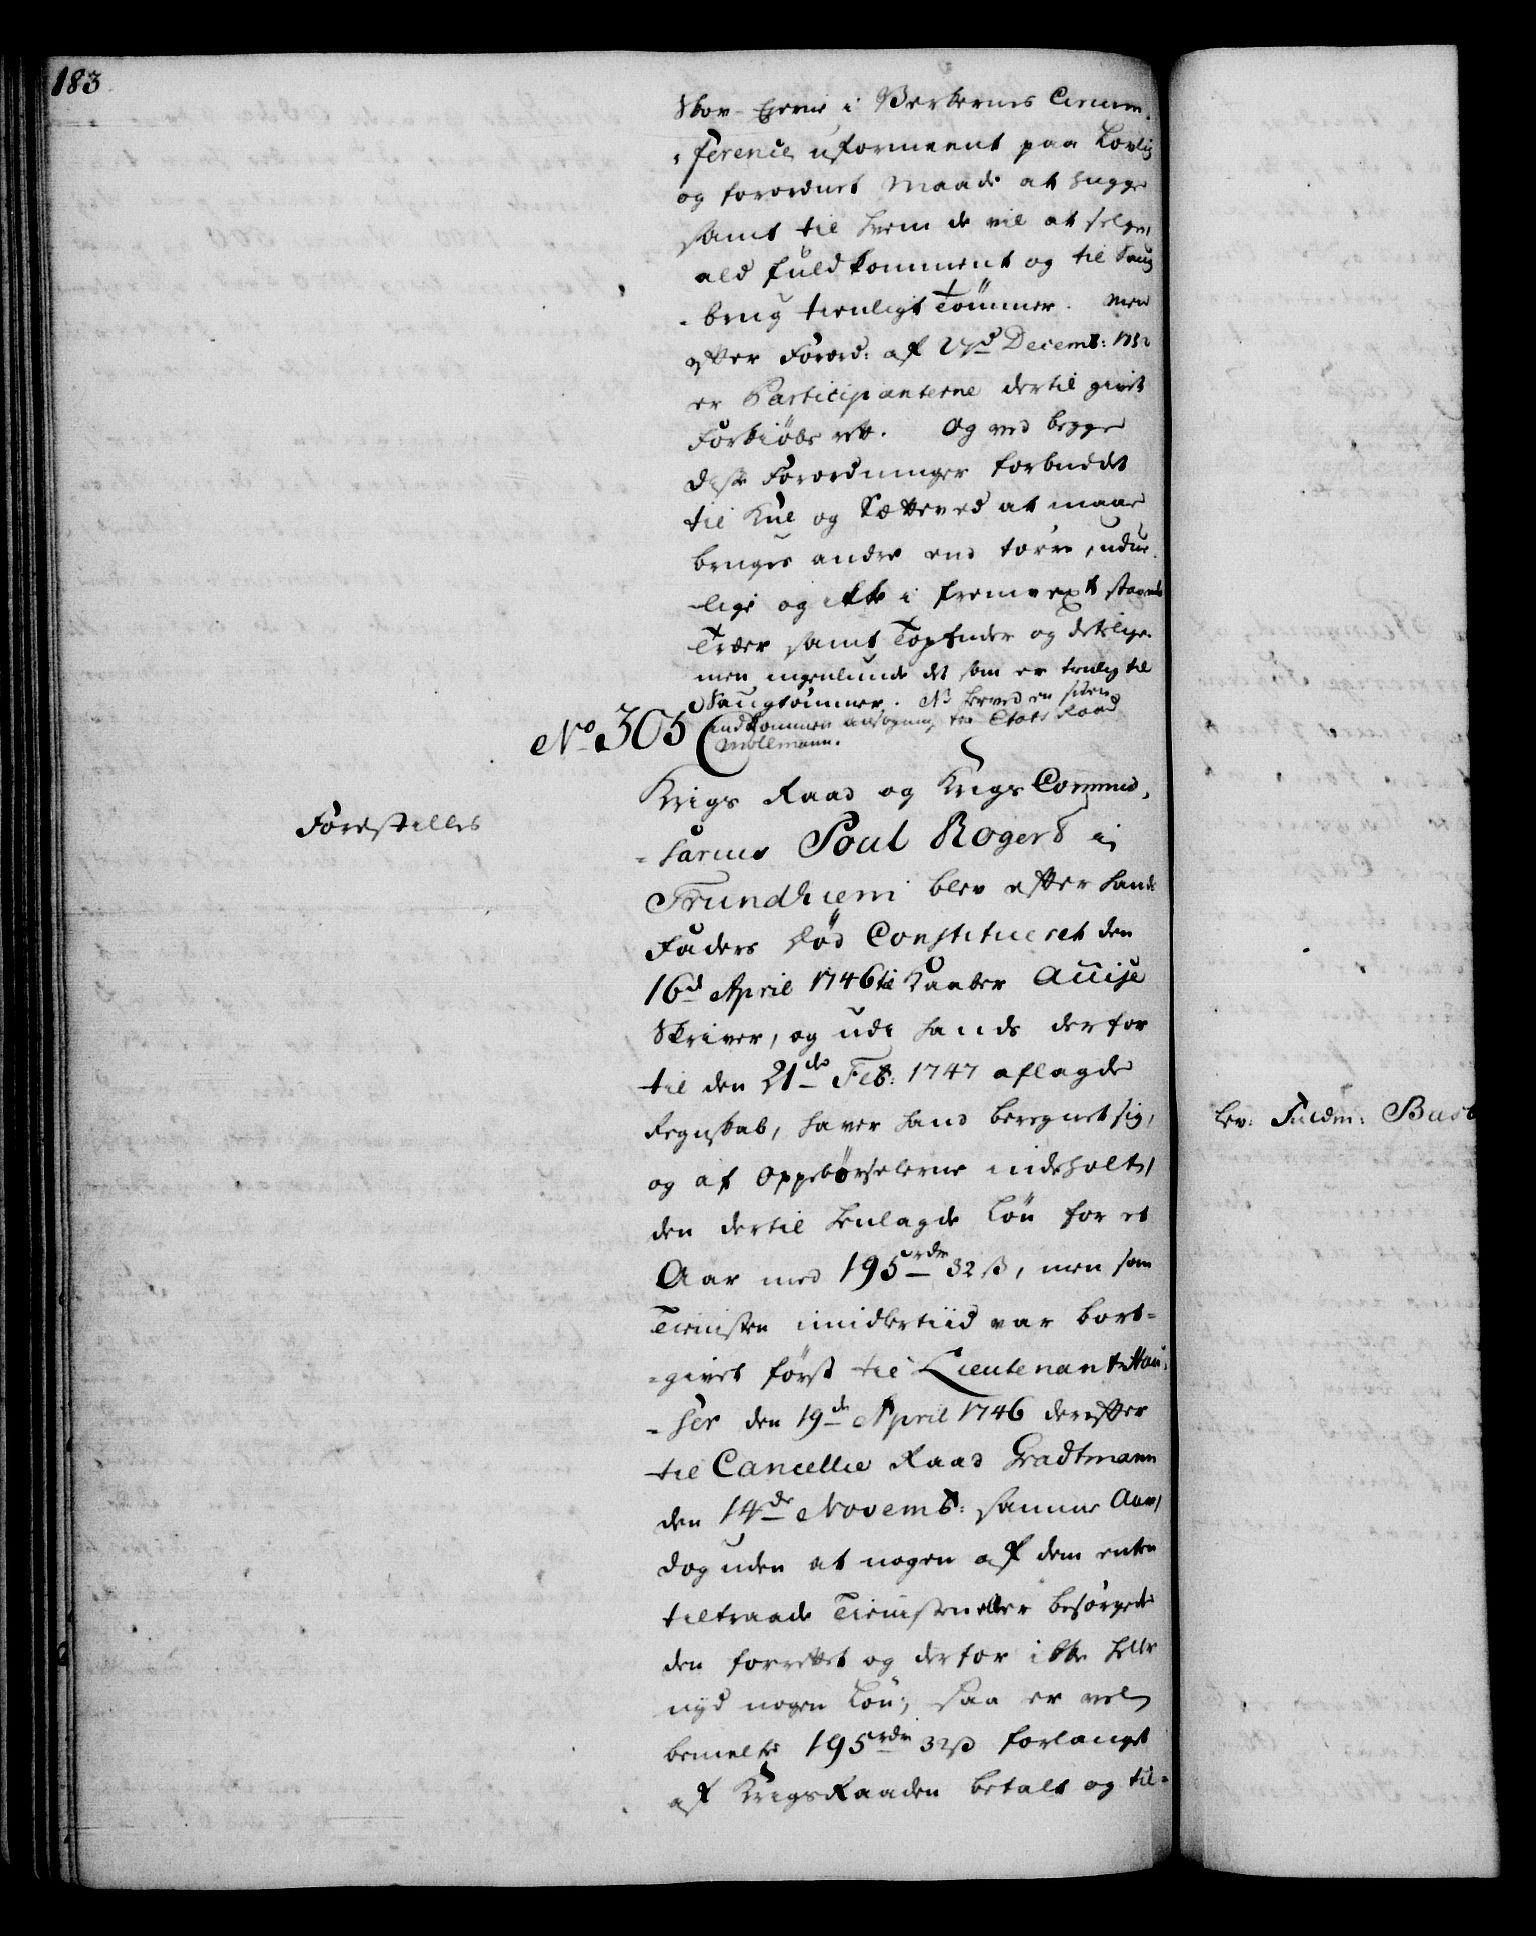 183
Skov-Ejerne i Verkernes Circum-
ference uformeent paa Lovlig
og forordnet Maade at hugge
samt til hvem de vil at selge,
ald fuldkomment og til Saug
-brug tienligt Tømmer. Men
efter Forord: af 27d Decemb: 1732
er Participanterne dertil givet
Forkiøbs rett. Og ved begge
disse Forordninger forbudet
til Kul og Sætteved at maae
bruges andre end tørre, udue-
lige og ikke i fremvext staaende
Træer samt Topender og deslige.
men ingenlunde det som er tienlig til
Saugtømmer. NB herved en siden
indkommen ansøgning fra Etats Raad
Mollmann.
No 305
Forestilles
Krigs Raad og Krigs Commis-
=sarius Poul Rogert i
Trundhiem blev efter hands
Faders Død Constitueret den
16d April 1746 til Kaaber Accise
Skriver, og udi hands derfor
til den 21de Feb: 1747 aflagde
Regnskab, haver hand beregnet sig,
og af Oppebørselerne indeholt,
den dertil henlagde Løn for et
Aar med 195rdr 32ß, men som
Tienisten imidlertiid var bort-
=givet først til Lieutenant Hau-
=ser den 19de April 1746 derefter
til Cancellie Raad Gradtmann
den 14de Novemb: samme Aar,
dog uden at nogen af dem enten
tiltraade Tienisten eller besørgede
den forrettet og derfor ikke heller
nyd nogen Løn; saa er vel
bemelte 195rdr 32ß forlanget
af KrigsRaaden betalt og til-